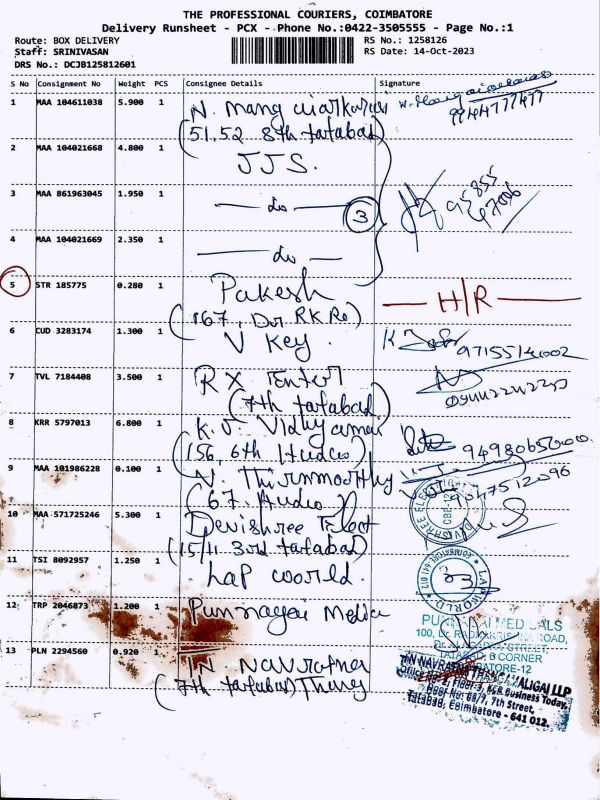 THE PROFESSIONAL COURIERS, COIMBATORE
Delivery Runsheet - PCX - Phone No.:0422-3505555 - Page No.:1
Route: BOX DELIVERY
RS No.: 1258126
Staff: SRINIVASAN
RS Date: 14-Oct-2023
DRS No.: DCJB125812601
S No Consignment No Weight PCS Consignee Details Signature
1 MAA 104611038 5.900 1 N.
(51.52 8th tatabad)
2 MAA 104021668 4.800 1 JJS.
3 MAA 861963045 1.950 1 — do — 3
4 MAA 104021669 2.350 1 — do —
5 STR 185775 0.280 1 Pakesh — H/R —
(167, Dr RK Rd)
6 CUD 3283174 1.300 1 V Key. 9715514002
7 TVL 7184408 3.500 1 RX Enter
(7th tatabad)
8 KRR 5797013 6.800 1 K.
(156, 6th
9 MAA 101986228 0.100 1 N.
(67.
10 MAA 571725246 5.300 1 Devishree Elect
(15/11 3rd tatabad)
11 TSI 8092957 1.250 1 Lap world.
12 TRP 2046873 1.200 1 Punnagai Media
PUNNAGAI MEDICALS
100, Dr. RADHAKRISHNA ROAD,
TATABAD, B CORNER
13 PLN 2294560 0.920 1 TN. Navratna
(7th tatabad) Thang
TN NAVRATNA THANGAMALIGAI LLP
Office No. 2, Floor 3, KCR Business Today,
Door No: 68/7, 7th Street,
Tatabad, Coimbatore - 641 012.